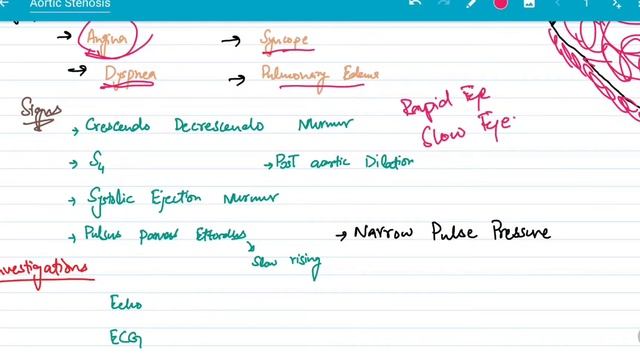 Aortic Stenosis
1
→ Angina → Syncope
→ Dyspnea → Pulmonary Edema
Rapid Eye
Slow Eye.
Signs
→ Crescendo Decrescendo Murmur
→ S4 → Post aortic Dilation
→ Systolic Ejection Murmur
→ Pulsus parvus → Narrow Pulse Pressure
Slow rising
Investigations
Echo
ECG